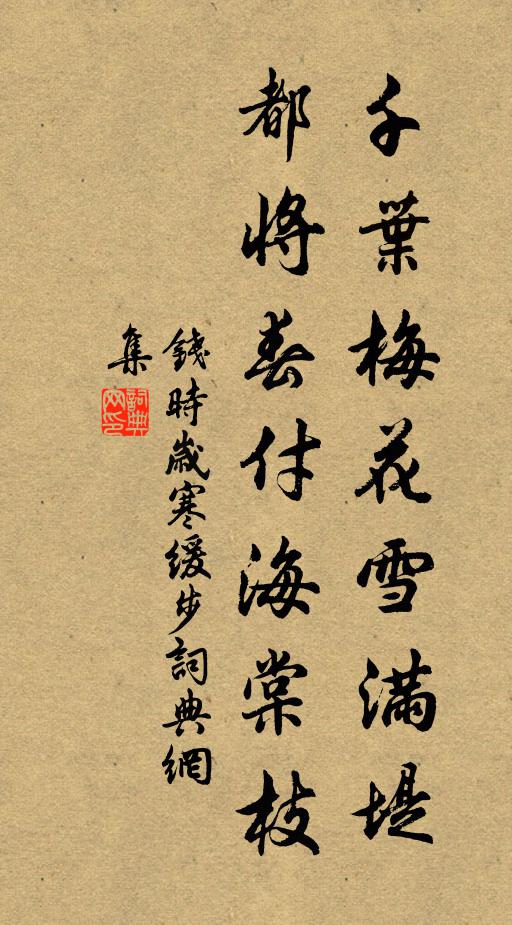 千葉梅花雪滿堤
都將春付海棠枝
錢時歲寒緩步詞典網
集
詞典網印